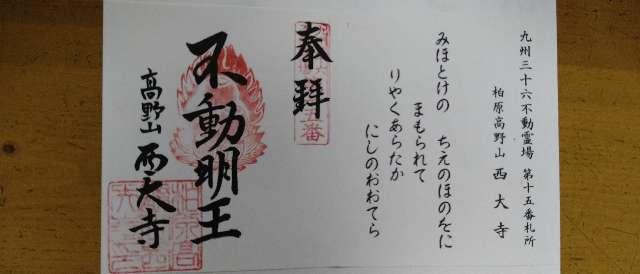 九州三十六不動霊場 第十五番札所
柏原高野山 西大寺
みほとけの ちえのほのをに
まもられて
りやくあらたか
にしのおおてら
奉拜
不動明王
高野山 西大寺